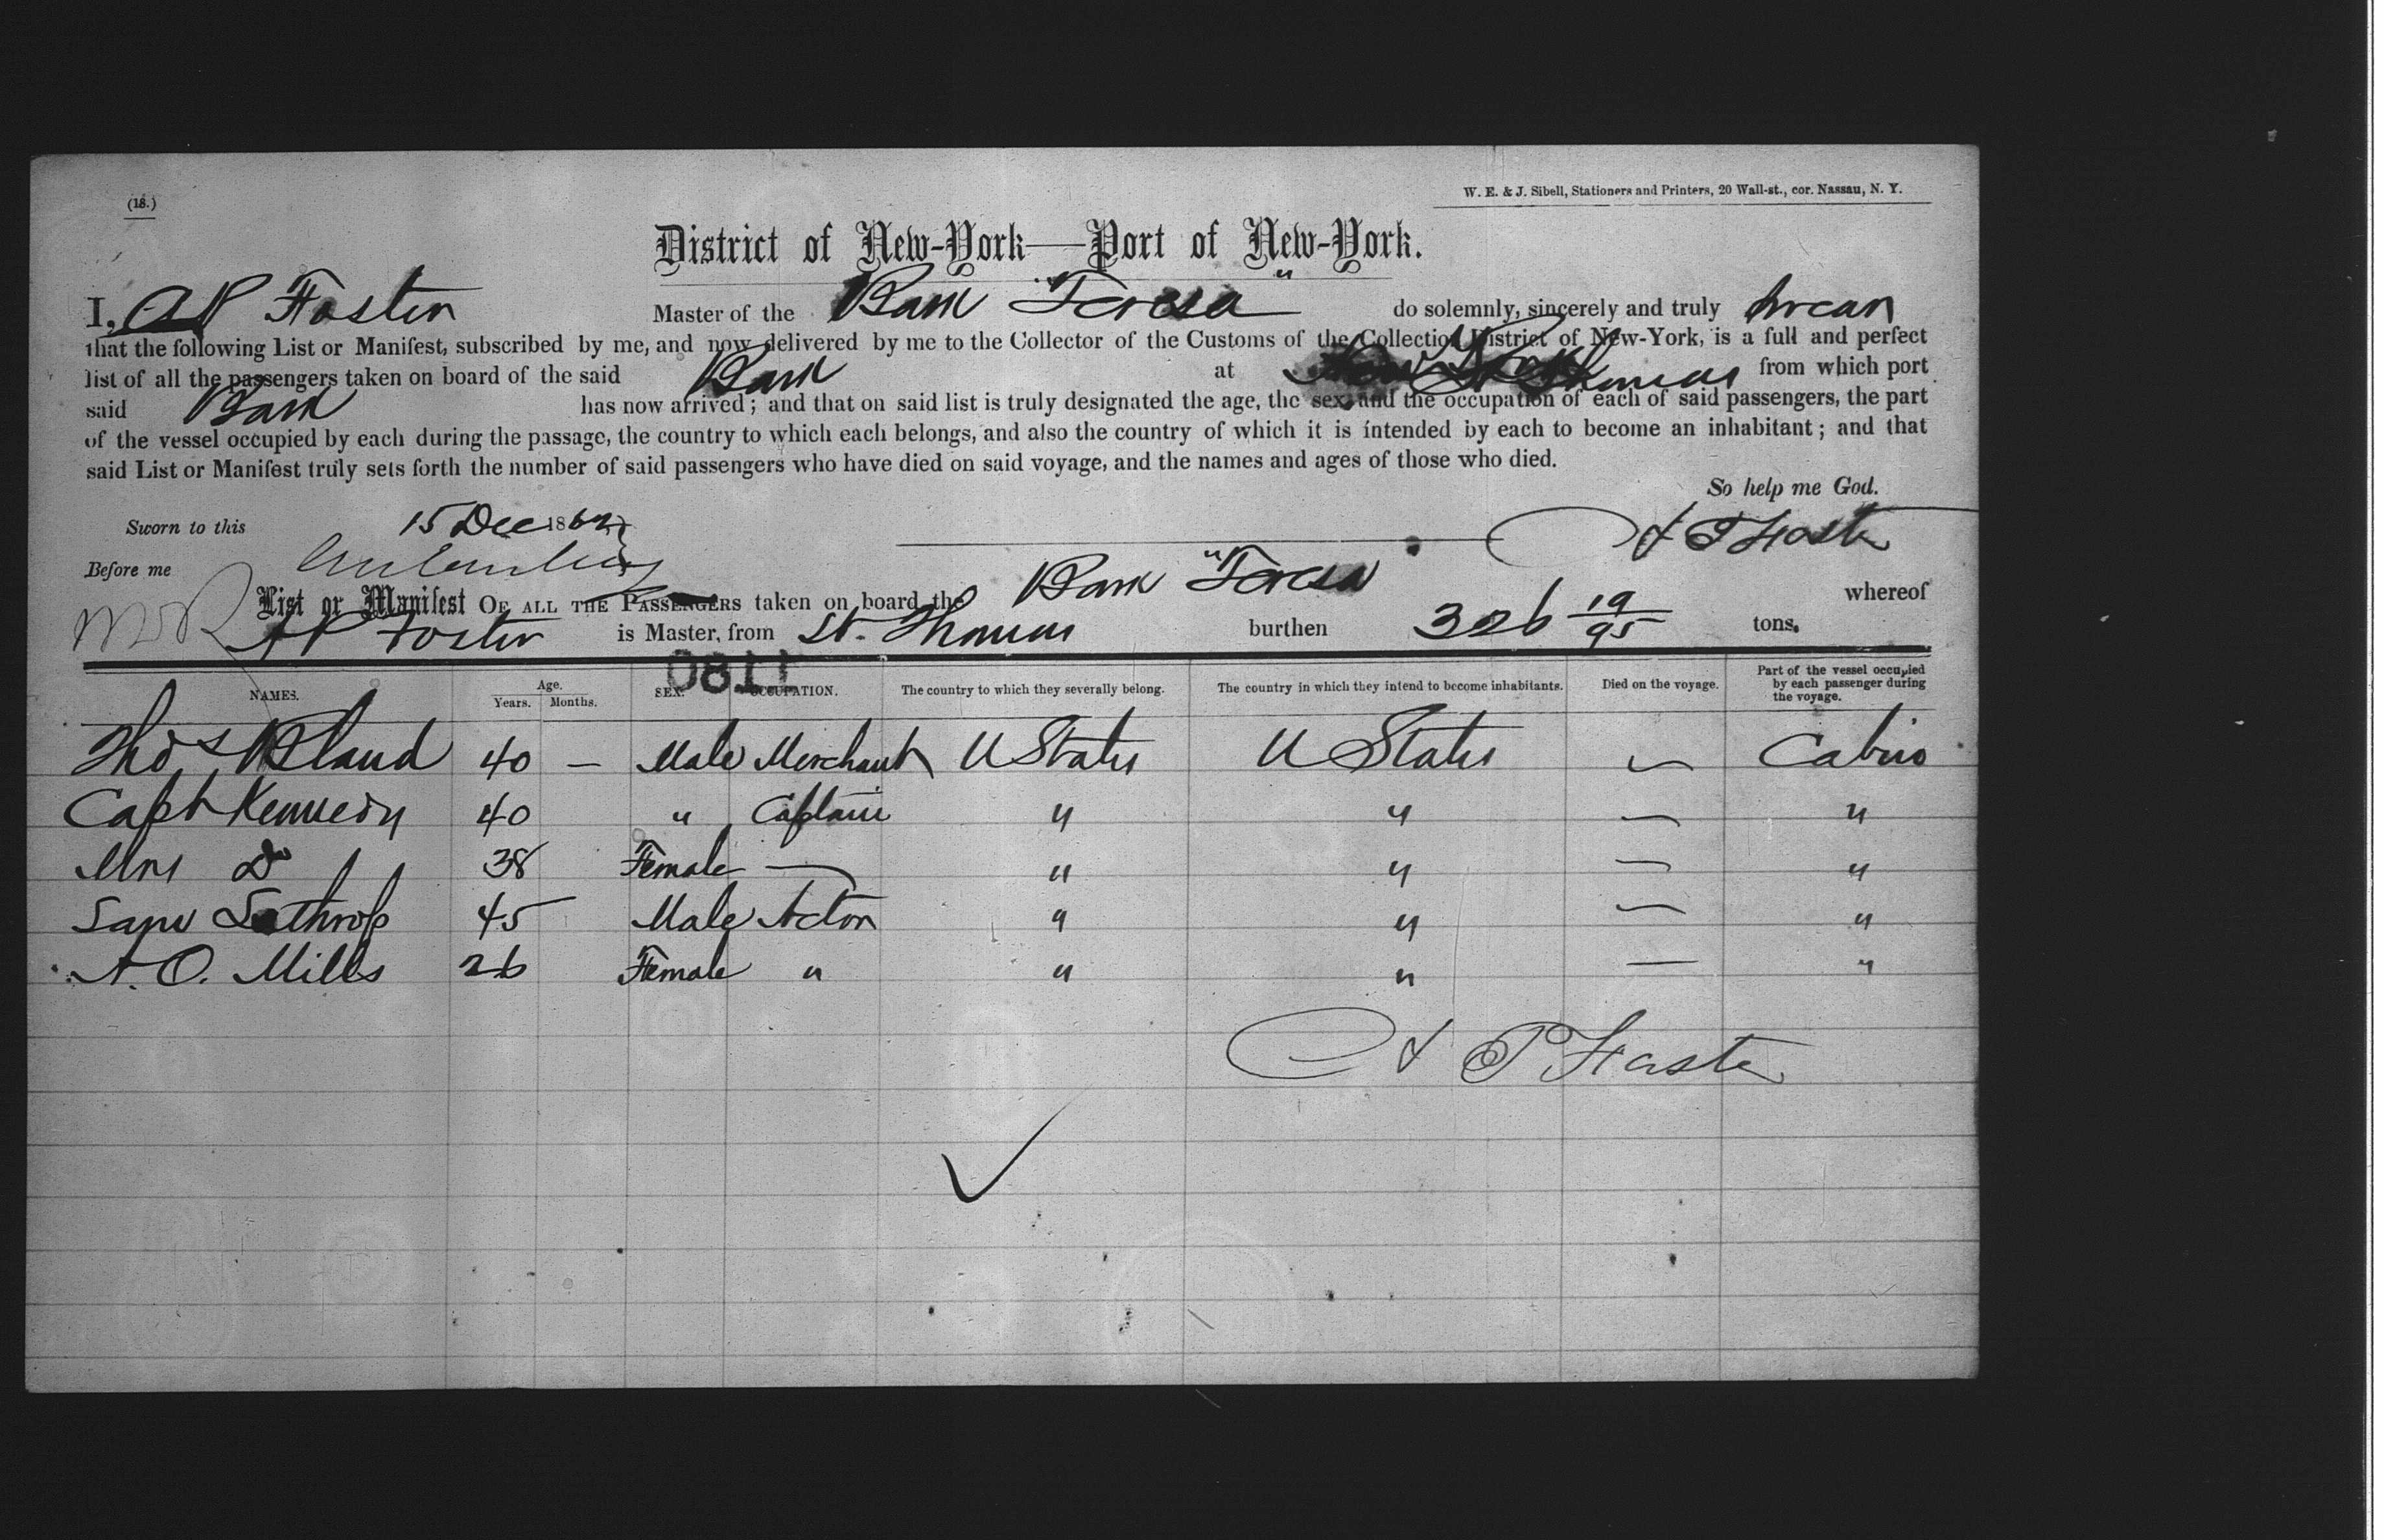 (18.)
W. E. & J. Sibell, Stationers and Printers, 20 Wall-st., cor. Nassau, N. Y.
District of New-York—Port of New-York.
I, A P Foster Master of the Bark "Teresa" do solemnly, sincerely and truly swear
that the following List or Manifest, subscribed by me, and now delivered by me to the Collector of the Customs of the Collection District of New-York, is a full and perfect
list of all the passengers taken on board of the said Bark at St Thomas from which port
said Bark has now arrived; and that on said list is truly designated the age, the sex and the occupation of each of said passengers, the part
of the vessel occupied by each during the passage, the country to which each belongs, and also the country of which it is intended by each to become an inhabitant; and that
said List or Manifest truly sets forth the number of said passengers who have died on said voyage, and the names and ages of those who died.
So help me God.
Sworn to this 15 Dec 186
A P Foster
Before me
List or Manifest OF ALL THE PASSENGERS taken on board the Bark "Teresa" whereof
A P Foster is Master, from St. Thomas burthen 326 19/95 tons.
0811
NAMES. Age. Years. Months. SEX. OCCUPATION. The country to which they severally belong. The country in which they intend to become inhabitants. Died on the voyage. Part of the vessel occupied by each passenger during the voyage.
Thos Bland 40 — Male Merchant U States U States — Cabin
Capt Kennedy 40 " Captain " " — "
Mrs Do 38 Female — " " — "
Lathrop 45 Male Actor " " — "
A. O. Mills 26 Female " " " — "
A P Foster